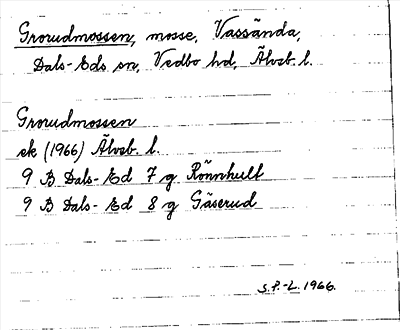 Grorudmossen, mosse, Vassända,
Dals-Eds sn, Vedbo hd, Älvsb. l.
Grorudmossen
ek (1966) Älvsb. l.
9 B Dals-Ed 7 g Rönnhult
9 B Dals-Ed 8 g Gäserud
S.P.-L. 1966.